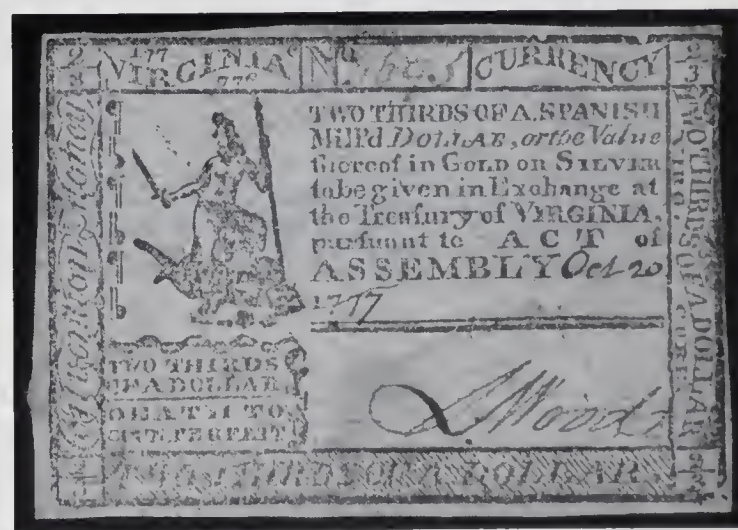 VIRGINIA No CURRENCY
TWO THIRDS OF A SPANISH
Mill'd DOLLAR, or the Value
thereof in GOLD or SILVER
to be given in Exchange at
the Treasury of VIRGINIA,
pursuant to ACT of
ASSEMBLY Oct 20
1777
TWO THIRDS
OF A DOLLAR
DEATH TO
COUNTERFEIT
TWO THIRDS OF A DOLLAR
TWO THIRDS OF A DOLLAR
VIRG. CURR.